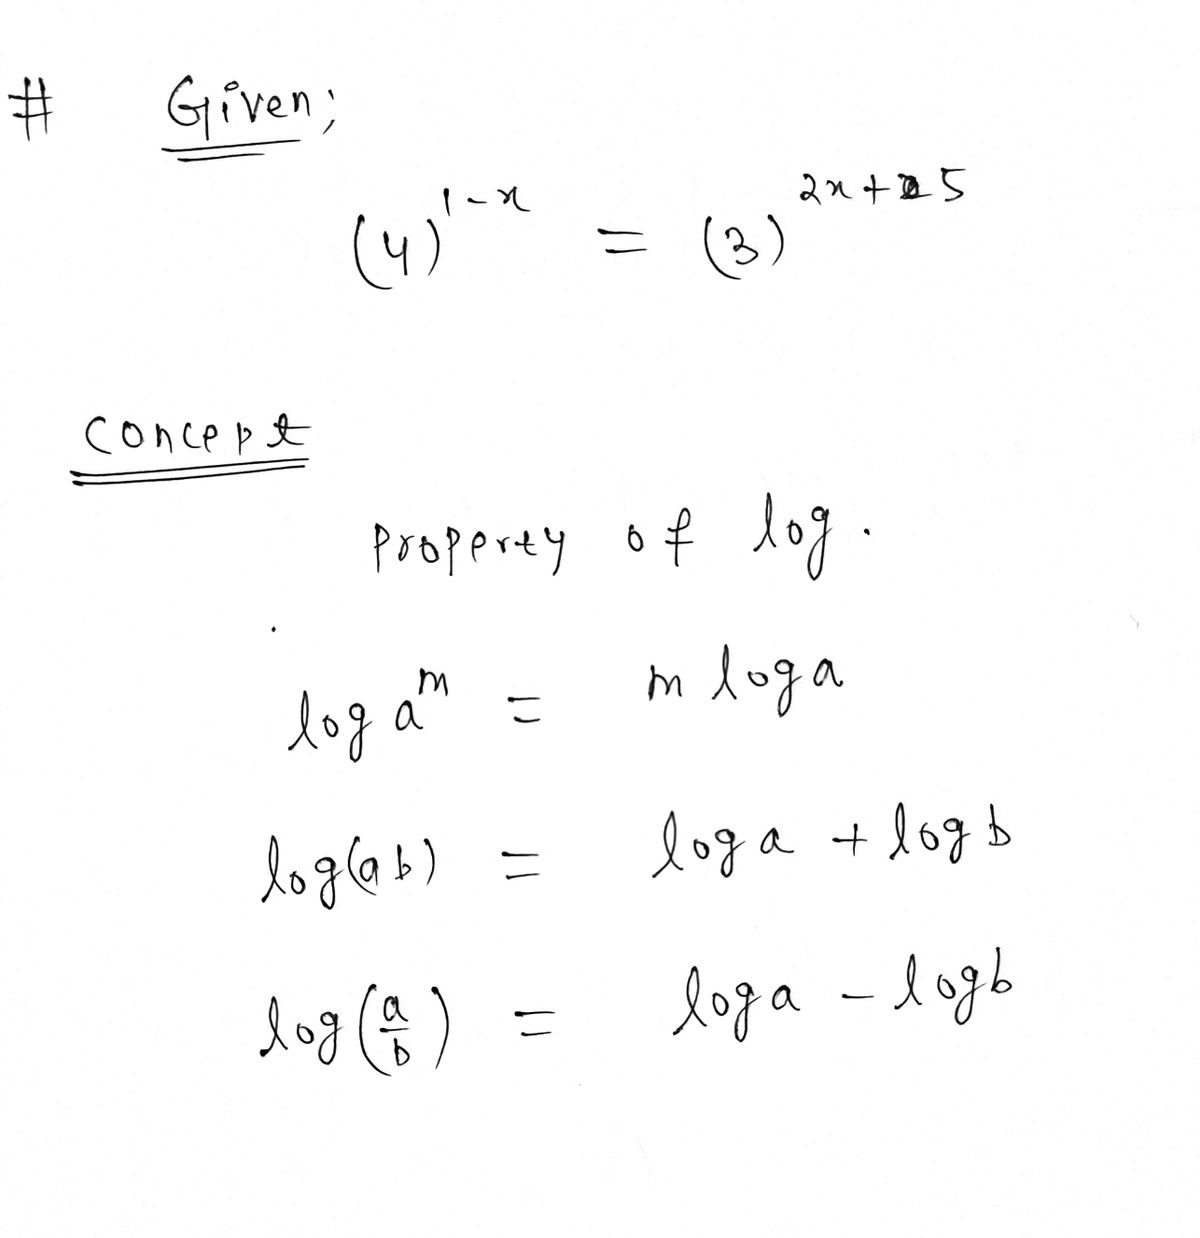 # Given;
(4)^{1-x} = (3)^{2x+5}
Concept
Property of log.
log a^m = m log a
log(ab) = log a + log b
log(a/b) = log a - log b